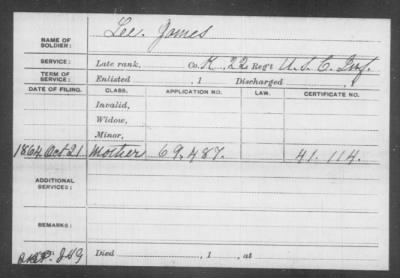 NAME OF SOLDIER: Lee, James
SERVICE: Late rank, Co. K, 22 Reg't U.S.C. Inf.
TERM OF SERVICE: Enlisted , 1 Discharged , 1
DATE OF FILING. CLASS. APPLICATION NO. LAW. CERTIFICATE NO.
Invalid,
Widow,
Minor,
1864 Oct 21 Mother 69,487. 41.114.
ADDITIONAL SERVICES:
REMARKS:
Died , 1 , at